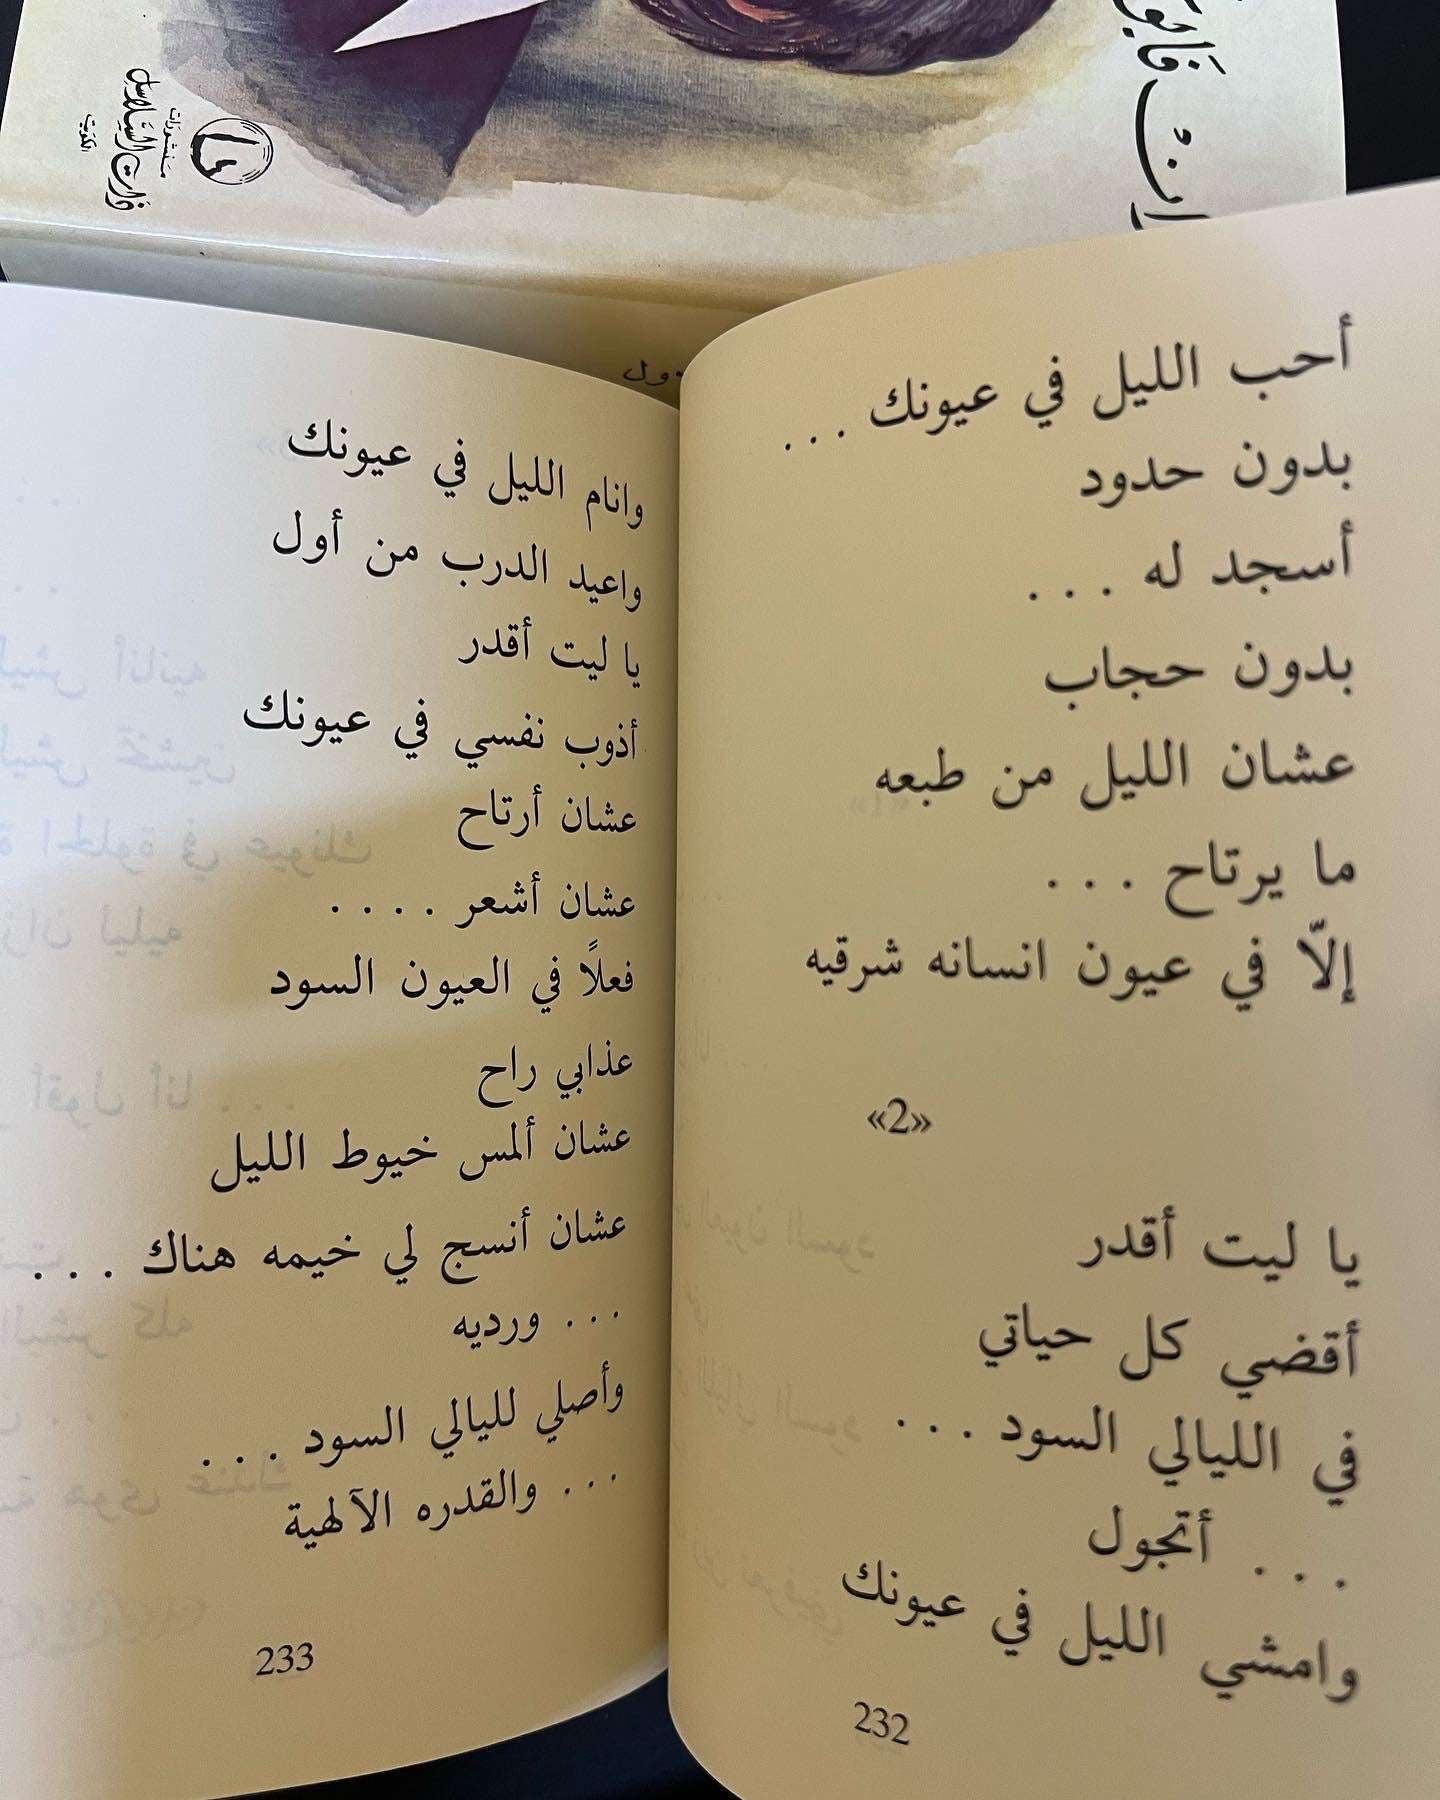 منشورات
ذات السلاسل
الكويت
أحب الليل في عيونك . . .
بدون حدود
أسجد له . . .
بدون حجاب
عشان الليل من طبعه
ما يرتاح . . .
إلاّ في عيون انسانه شرقيه
«2»
يا ليت أقدر
أقضي كل حياتي
في الليالي السود . . .
. . . أتجول
وامشي الليل في عيونك
232
وانام الليل في عيونك
واعيد الدرب من أول
يا ليت أقدر
أذوب نفسي في عيونك
عشان أرتاح
عشان أشعر . . . .
فعلاً في العيون السود
عذابي راح
عشان ألمس خيوط الليل
عشان أنسج لي خيمه هناك . . .
. . . ورديه
وأصلي لليالي السود . . .
. . . والقدره الآلهية
233